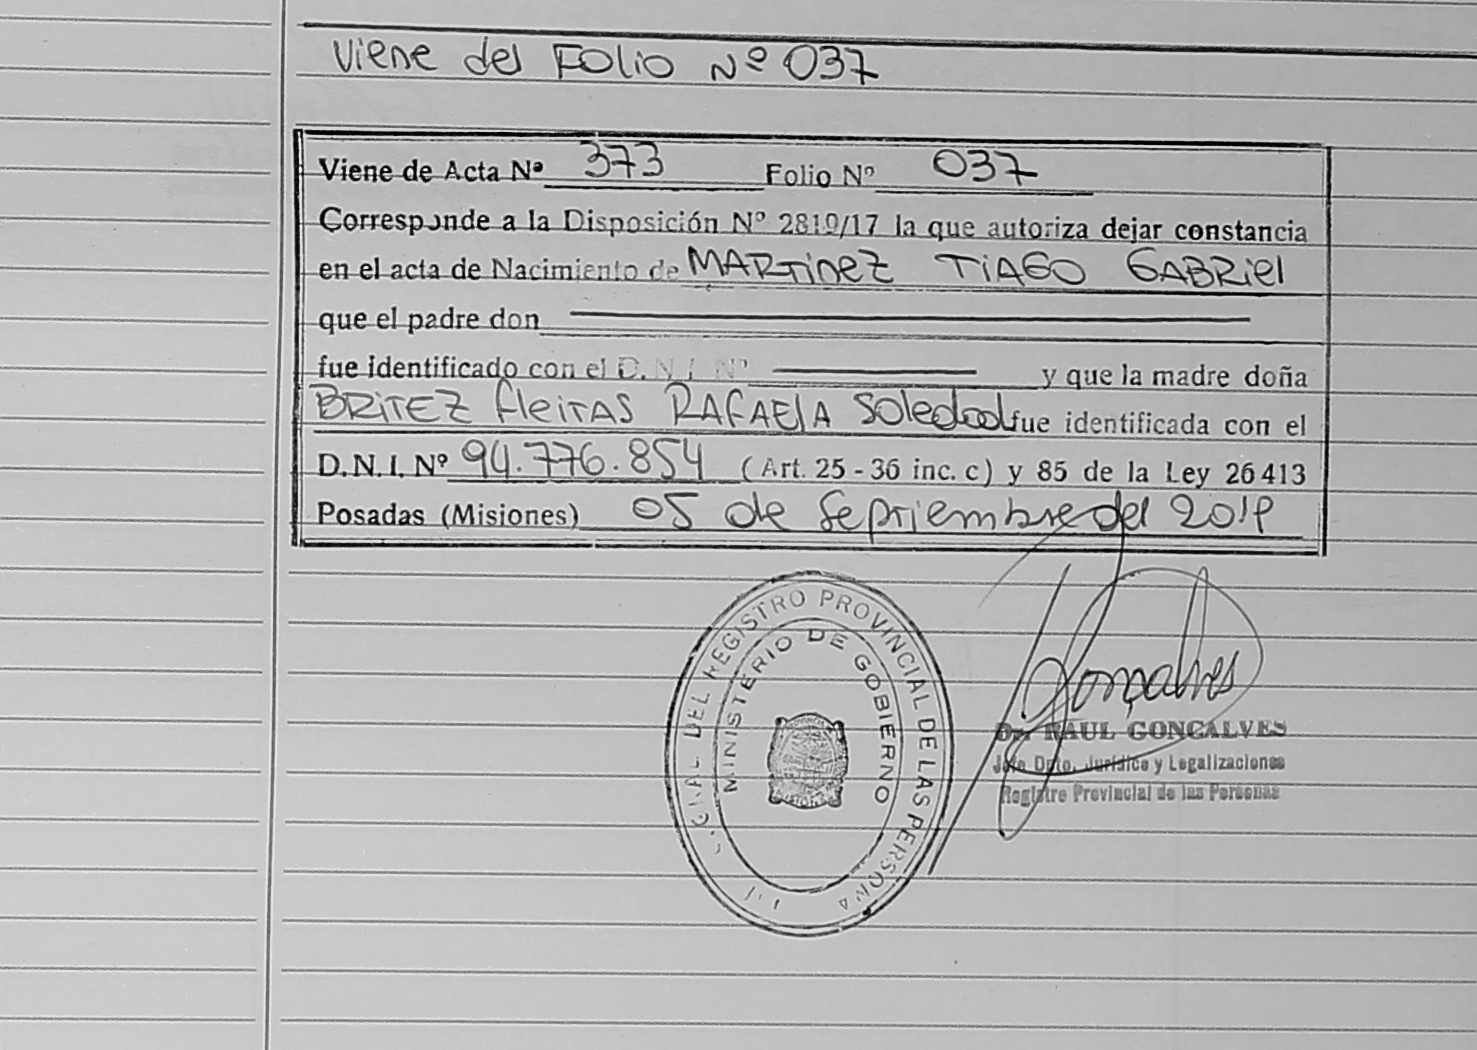 Viene del Folio Nº 037
Viene de Acta Nº 373 Folio Nº 037
Corresponde a la Disposición Nº 2819/17 la que autoriza dejar constancia
en el acta de Nacimiento de MARTINEZ TIAGO GABRIEL
que el padre don
fue identificado con el D.N.I. Nº y que la madre doña
BRITEZ FLEITAS RAFAELA SOLEDAD fue identificada con el
D.N.I. Nº 94.776.854 (Art. 25 - 36 inc. c) y 85 de la Ley 26413
Posadas (Misiones) 05 de Septiembre del 2019
DEL REGISTRO PROVINCIAL DE LAS PERSONA
MINISTERIO DE GOBIERNO
Gonçalves
Dr. RAUL GONCALVES
Jefe Dpto. Jurídico y Legalizaciones
Registro Provincial de las Personas